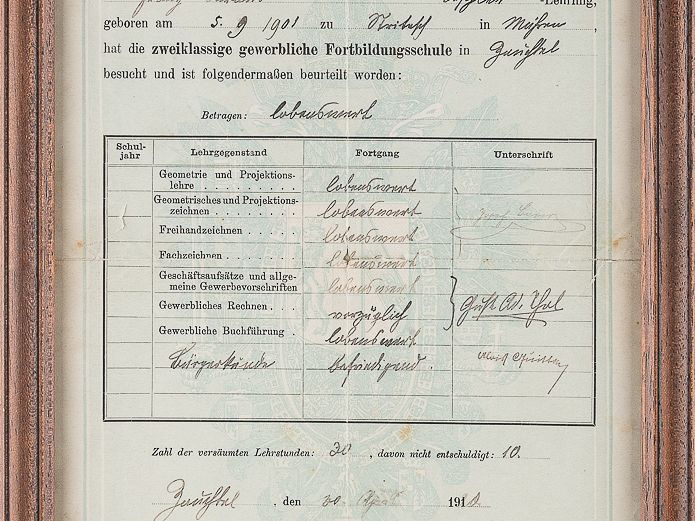 -Lehrling,
geboren am 5. 9 1901 zu in Mähren,
hat die zweiklassige gewerbliche Fortbildungsschule in Zauchtel
besucht und ist folgendermaßen beurteilt worden:
Betragen: lobenswert
Schul-jahr Lehrgegenstand Fortgang Unterschrift
Geometrie und Projektions-
lehre lobenswert
Geometrisches und Projektions-
zeichnen lobenswert
Freihandzeichnen lobenswert
Fachzeichnen lobenswert
Geschäftsaufsätze und allge-
meine Gewerbevorschriften lobenswert
Gewerbliches Rechnen vorzüglich
Gewerbliche Buchführung lobenswert
Bürgerkunde befriedigend.
Zahl der versäumten Lehrstunden: 30, davon nicht entschuldigt: 10.
Zauchtel, den 30 April 191